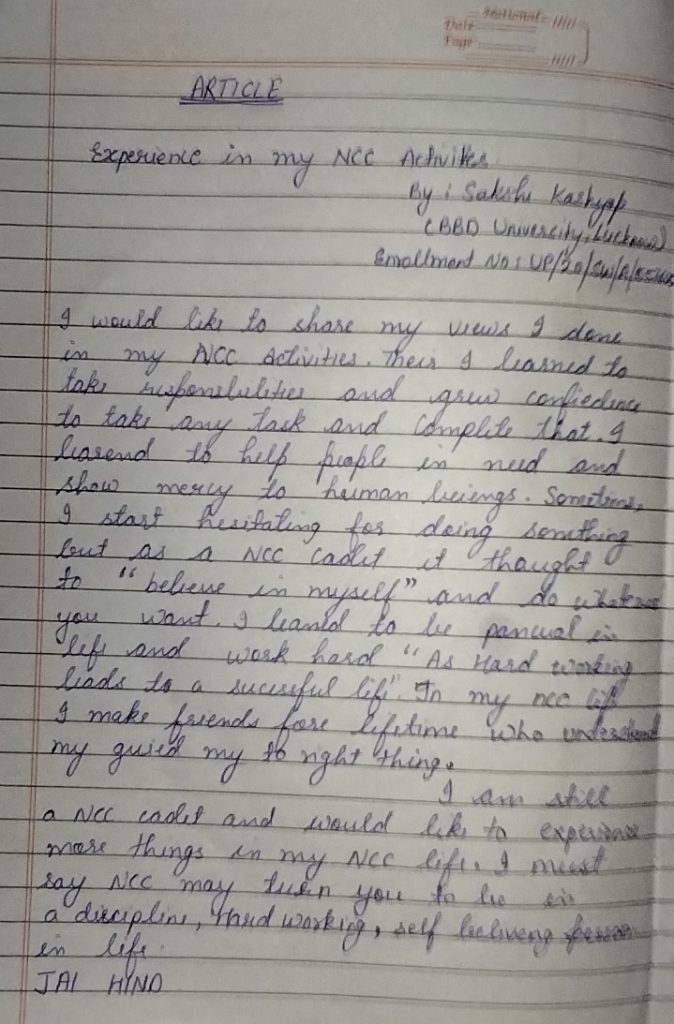 National
Date
Page
ARTICLE
Experience in my NCC Activites
By : Sakshi Kashyap
(BBD Univercity, Lucknow)
Enrollment No : UP/20/SW/A/
I would like to share my views I done
in my NCC activities. Their I learned to
take responsbilities and grew confiedence
to take any task and complete that. I
learend to help people in need and
show mercy to human beiengs. Sometimes,
I start hesitating for doing something
but as a NCC cadet it thaught
to "believe in myself" and do whatever
you want. I leanld to be pancual in
life and work hard "As Hard working
leads to a sucessful life". In my ncc life
I make friends fore lifetime who understand
my guied my to right thing.
I am still
a NCC cadet and would like to experience
more things in my NCC life. I must
say NCC may turn you to be in
a discipline, Hard working, self beliveng person
in life.
JAI HIND